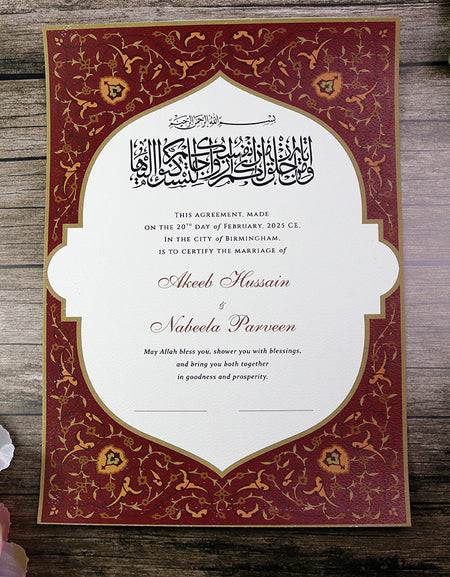 بسم الله الرحمن الرحيم
ومن آياته أن خلق لكم من أنفسكم أزواجا لتسكنوا إليها
THIS AGREEMENT, MADE
ON THE 20TH DAY OF FEBRUARY, 2025 CE,
IN THE CITY OF BIRMINGHAM,
IS TO CERTIFY THE MARRIAGE OF
Akeeb Hussain
&
Nabeela Parveen
May Allah bless you, shower you with blessings,
and bring you both together
in goodness and prosperity.